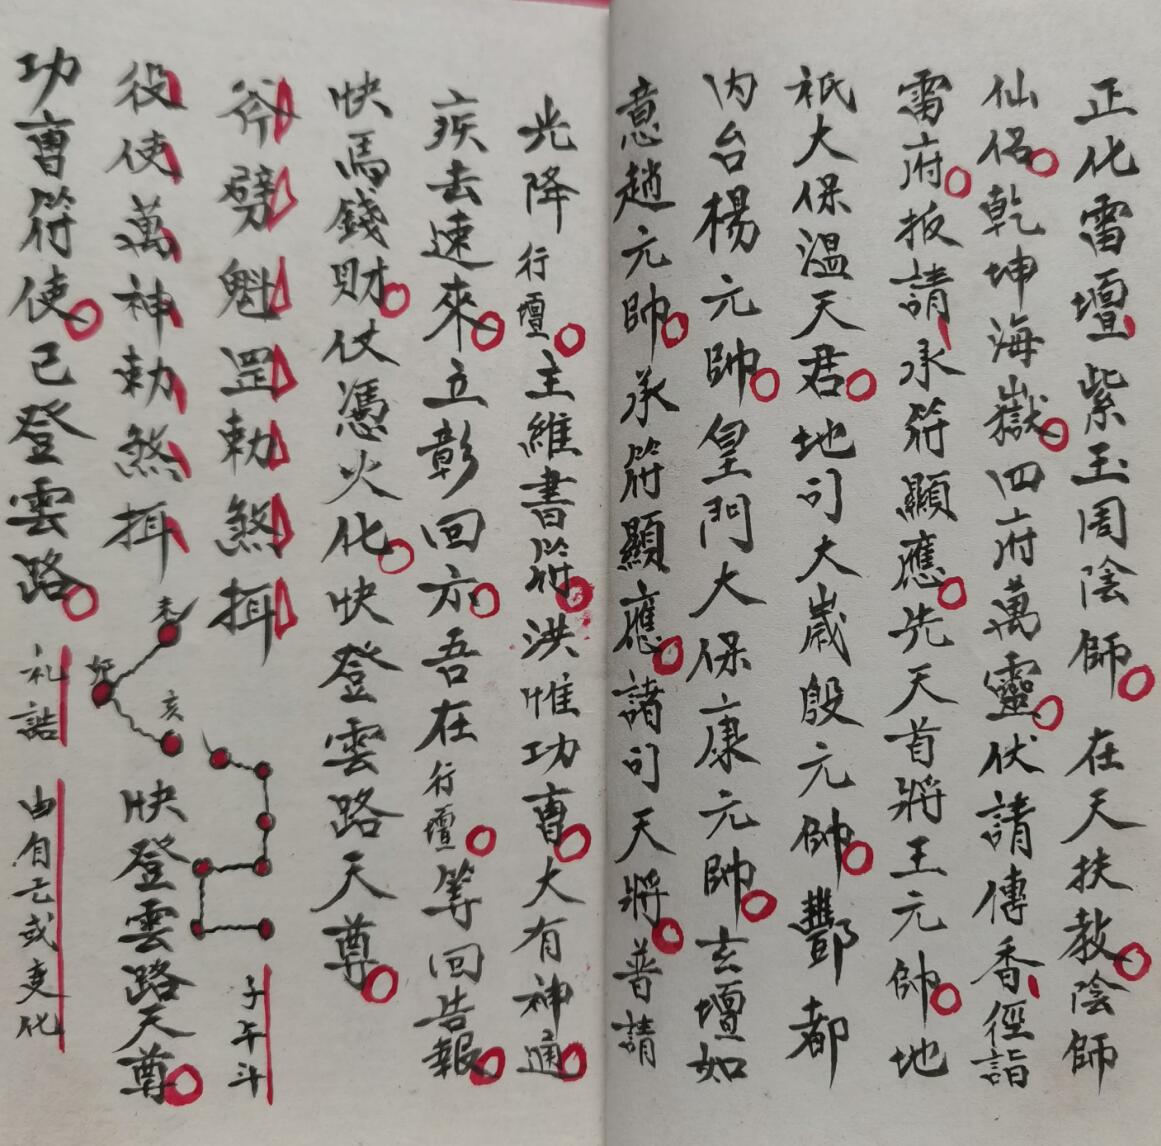 正化雷壇紫玉周陰師在天扶教陰師
仙侶乾坤海嶽四府萬靈伏請傳香徑詣
雷府扳請承符顯應先天首將王元帥地
祇大保溫天君地司大歲殷元帥酆都
内台楊元帥皇門大保康元帥玄壇如
意趙元帥承符顯應諸司天將普請
光降行壇主維書符洪惟功曹大有神通
疾去速來立彰回示吾在行壇等回告報
快馬錢財仗憑火化快登雲路天尊
斧劈魁罡勅煞揖
子午斗
役使萬神勅煞揖
亥
快登雲路天尊
功曹符使已登雲路
礼誥
由自己或更化